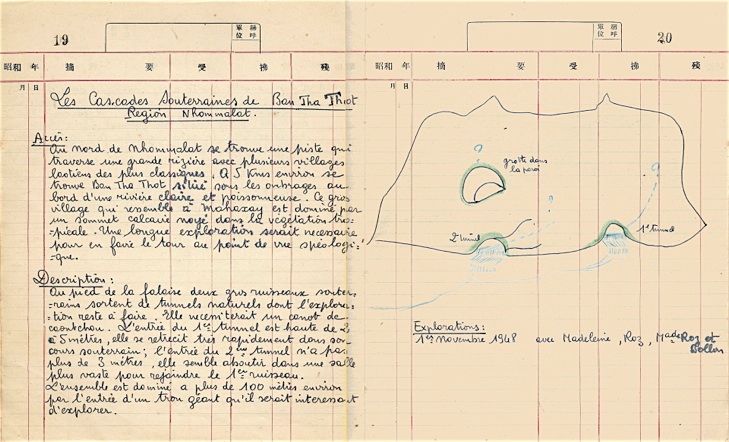 19
單位
稱呼
昭和 年
摘 要
受
拂
殘
月 日
Les Cascades Souterraines de Ban Tha Thot
Région Nhommalat.
Accès:
Au nord de Nhommalat se trouve une piste qui
traverse une grande rizière avec plusieurs villages
laotiens des plus classiques. A 5 Kms environ se
trouve Ban Tha Thot situé sous les ombrages au
bord d'une rivière claire et poissonneuse. Ce gros
village qui ressemble à Mahaxay est dominé par
un sommet calcaire noyé dans la végétation tro-
-picale. Une longue exploration serait nécessaire
pour en faire le tour au point de vue spéologi-
-que.
Description:
Au pied de la falaise deux gros ruisseaux souter-
-rains sortent de tunnels naturels dont l'explora-
-tion reste à faire. Elle necéssiterait un canot de
caoutchou. L'entrée du 1er tunnel est haute de
à 5 mètres, elle se retrécit très rapidement dans son
cours souterrain; l'entrée du 2me tunnel n'a pas
plus de 3 mètres, elle semble aboutir dans une salle
plus vaste pour rejoindre le 1er ruisseau.
L'ensemble est dominé a plus de 100 mètres environ
par l'entrée d'un trou géant qu'il serait interessant
d'explorer.
20
單位
稱呼
昭和 年
摘 要
受
拂
殘
月 日
?
grotte dans
la paroi
?
?
2e tunnel
1er tunnel
Explorations:
1er Novembre 1948 avec Madeleine, Roz, Made Roz et
Bollon